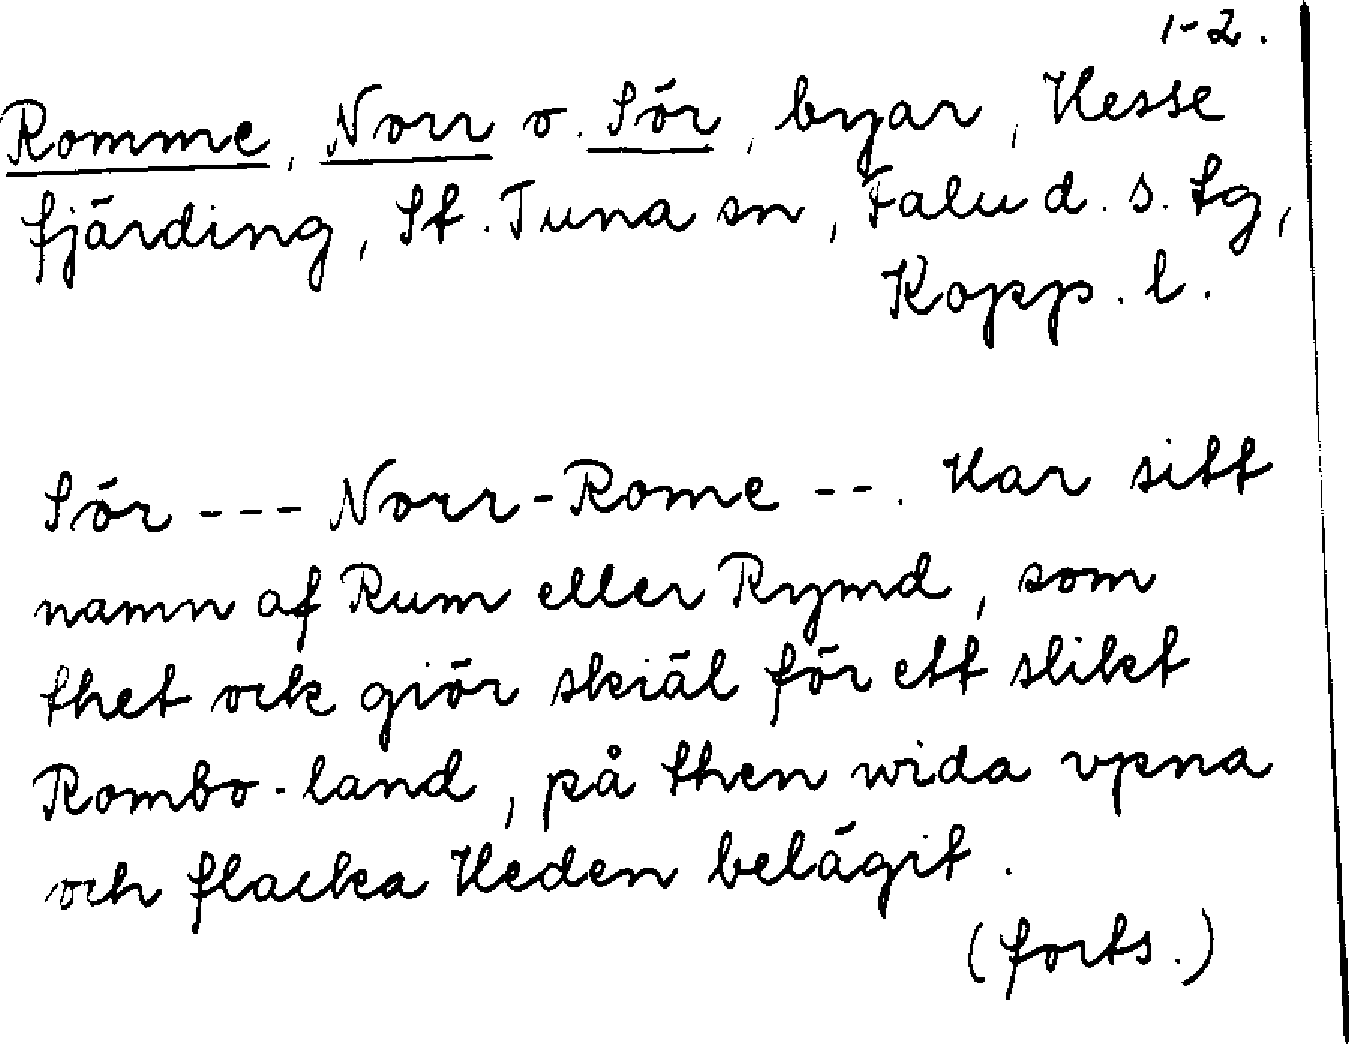 1-2.
Romme, Norr o. Sör, byar, Hesse
fjärding, St. Tuna sn, Falu d. s. tg,
Kopp. l.
Sör --- Norr-Rome --. Har sitt
namn af Rum eller Rymd, som
thet ock giör skiäl för ett slikt
Rombo-land, på then wida vpna
och flacka Heden belägit.
(forts.)